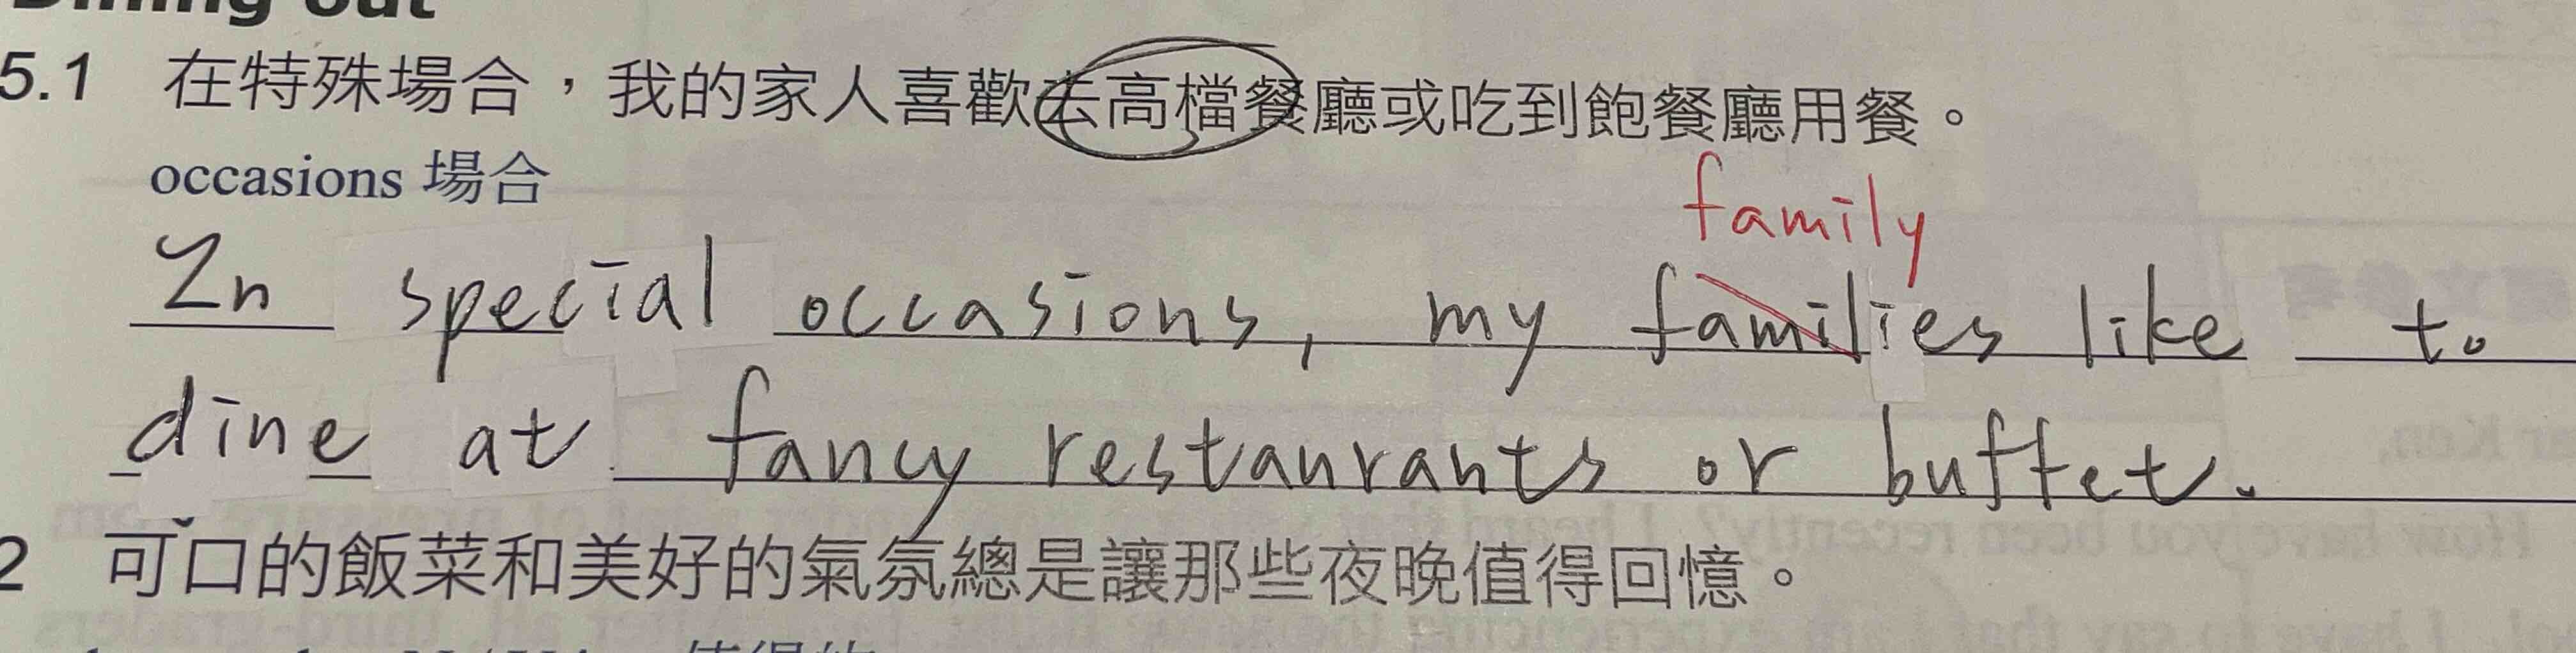 Dining out
5.1 在特殊場合，我的家人喜歡去高檔餐廳或吃到飽餐廳用餐。
occasions 場合
family
In special occasions, my families like to
dine at fancy restaurants or buffet.
2 可口的飯菜和美好的氣氛總是讓那些夜晚值得回憶。